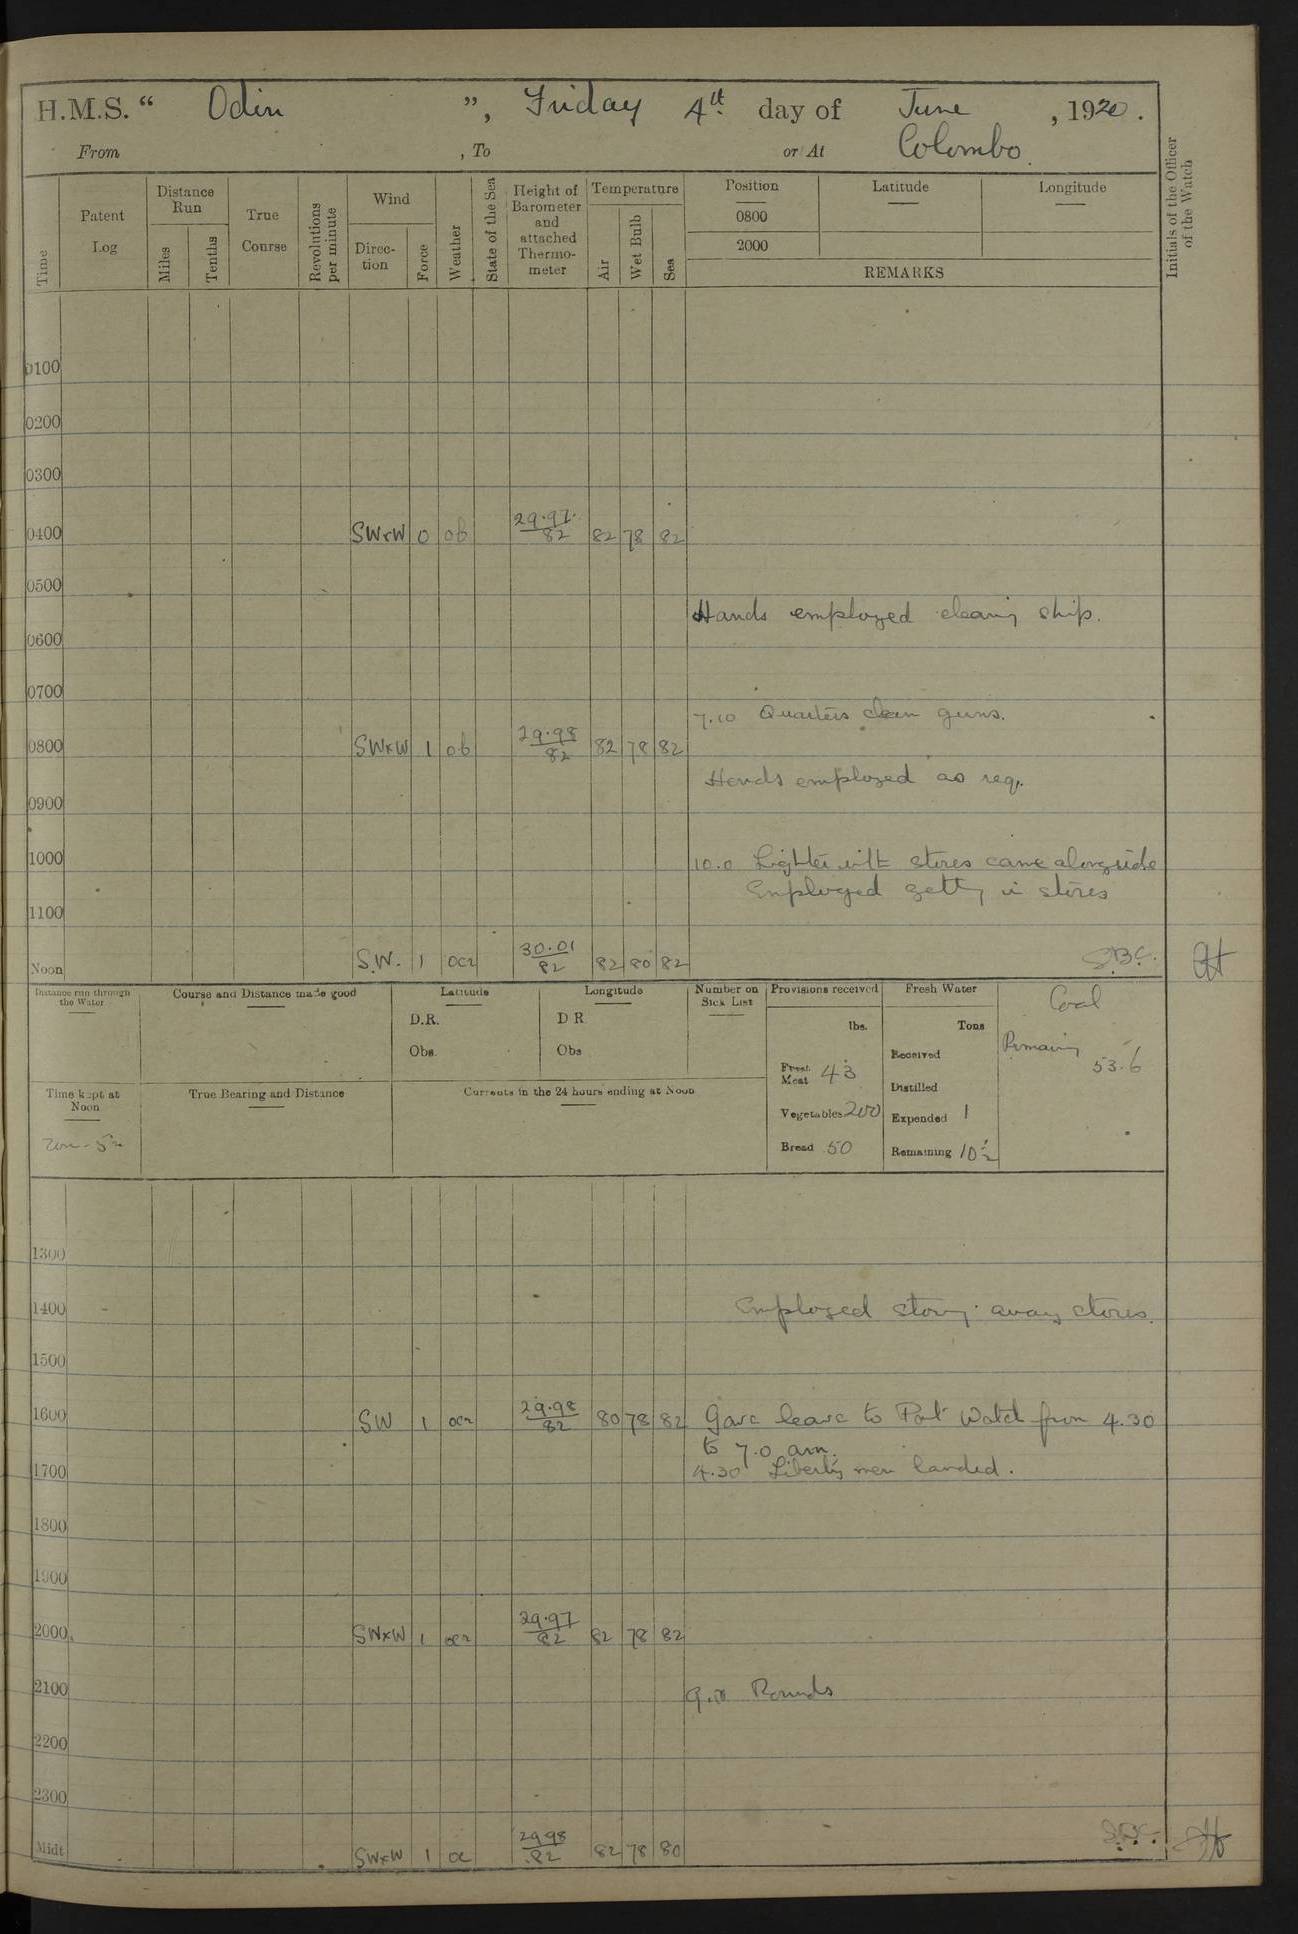 H.M.S. “ Odin ”, Friday 4th day of June , 1920.
From , To or At Colombo.
Time
Patent Log
Distance Run
Miles
Tenths
True Course
Revolutions per minute
Wind
Direc-tion
Force
Weather
State of the Sea
Height of Barometer and attached Thermo-meter
Temperature
Air
Wet Bulb
Sea
Position
0800
2000
Latitude
Longitude
REMARKS
Initials of the Officer of the Watch
0100
0200
0300
0400 SWxW 0 ob 29.97 82 82 78 82
0500
Hands employed cleaning ship.
0600
0700
7.10 Quarters clean guns.
0800 SWxW 1 ob 29.98 82 82 78 82
Hands employed as req.
0900
1000 10.0 Lighter with stores came alongside
Employed getting in stores
1100
Noon S.W. 1 ocr 30.01 82 82 80 82 S.B.C.
Distance run through the Water
Course and Distance made good
Latitude
D.R.
Obs.
Longitude
D R
Obs
Number on Sick List
Provisions received
lbs.
Fresh Meat 43
Vegetables 200
Bread 50
Fresh Water
Tons
Received
Distilled
Expended 1
Remaining 10½
Coal
Remaining 53.6
Time kept at Noon
True Bearing and Distance
Currents in the 24 hours ending at Noon
1300
1400 Employed stowing away stores.
1500
1600 SW 1 ocr 29.98 82 80 78 82 Gave leave to Port Watch from 4.30
to 7.0 am.
1700 4.30 Liberty men landed.
1800
1900
2000 SWxW 1 ocr 29.97 82 82 78 82
2100 Rounds
2200
2300
Midt SWxW 1 oc 29.98 82 82 78 80 S.B.C.